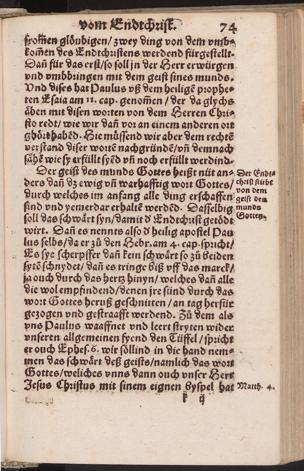 vom Endtchrist. 74
from̃en glöubigen / zwey ding von dem vmb=
kom̃en des Endtchristens werdend fürgestellt.
Dañ für das erst / so soll in der Herr erwürgen
vnd vmbbringen mit dem geist sines munds.
Vnd dises hat Paulus vß dem heiligẽ prophe=
ten Esaia am 11. cap. genom̃en / der da glych=
äben mit disen worten von dem Herren Chri=
sto redt / wie wir dañ vor an einem anderen ort
ghört habẽd. Hie müssend wir aber dem rechtẽ
verstand diser wortẽ nachgründẽ / vñ demnach
sähẽ wie sy erfüllt syẽd vñ noch erfüllt werdind.
Der geist des munds Gottes heißt nüt an=
ders dañ dz ewig vñ warhafftig wort Gottes /
durch welches im anfang alle ding erschaffen
sind vnd yemerdar erhaltẽ werdẽd. Dasselbig
soll das schwärt syn / damit ď Endtchrist getödt
wirt. Dañ es nennts also ď heilig apostel Pau
lus selbs / da er zů den Hebr. am 4. cap. spricht /
Es sye scherpffer dañ kein schwärt so zů beiden
sytẽ schnydet / dañ es tringe biß vff das marck /
ja ouch durch das hertz hinyn / welches dañ alle
die wol empfindend / denen jre sünd durch das
wort Gottes heruß geschnitten / an tag herfür
gezogen vnd gestraafft werdend. Zů dem als
vns Paulus waaffnet vnd leert stryten wider
vnseren allgemeinen fyend den Tüffel / spricht
er ouch Ephes. 6. wir söllind in die hand nem=
men das schwärt deß geists / namlich das wort
Gottes / weliches vnns dann ouch vnser Herr
Jesus Christus mit sinem eignen byspel hat
k ij
Der Endt=
christ stirbt
von dem
geist des
munds
Gottes.
Matth. 4.